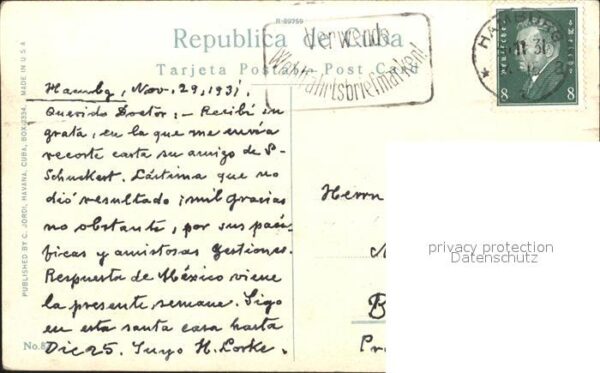 R-89759
Republica de Cuba
Tarjeta Postal - Post Card
Verwende
Wohlfahrtsbriefmarken!
HAMBURG
11 31
DEUTSCHES REICH
8 8
PUBLISHED BY C. JORDI, HAVANA, CUBA, BOX 1334. MADE IN U S A
Hambg, Nov. 29, 1931.
Querido Doctor; - Recibí su
grata, en la que me envía
recorte carta su amigo de S-
Schuckert. Lástima que no
dió resultado ¡mil gracias
no obstante, por sus pací-
ficas y amistosas gestiones.
Respuesta de México viene
la presente semana. Sigo
en esta santa casa hasta
Dic 25. Suyo H. Lorke.
No. 8
Herrn
B
Pr
privacy protection
Datenschutz